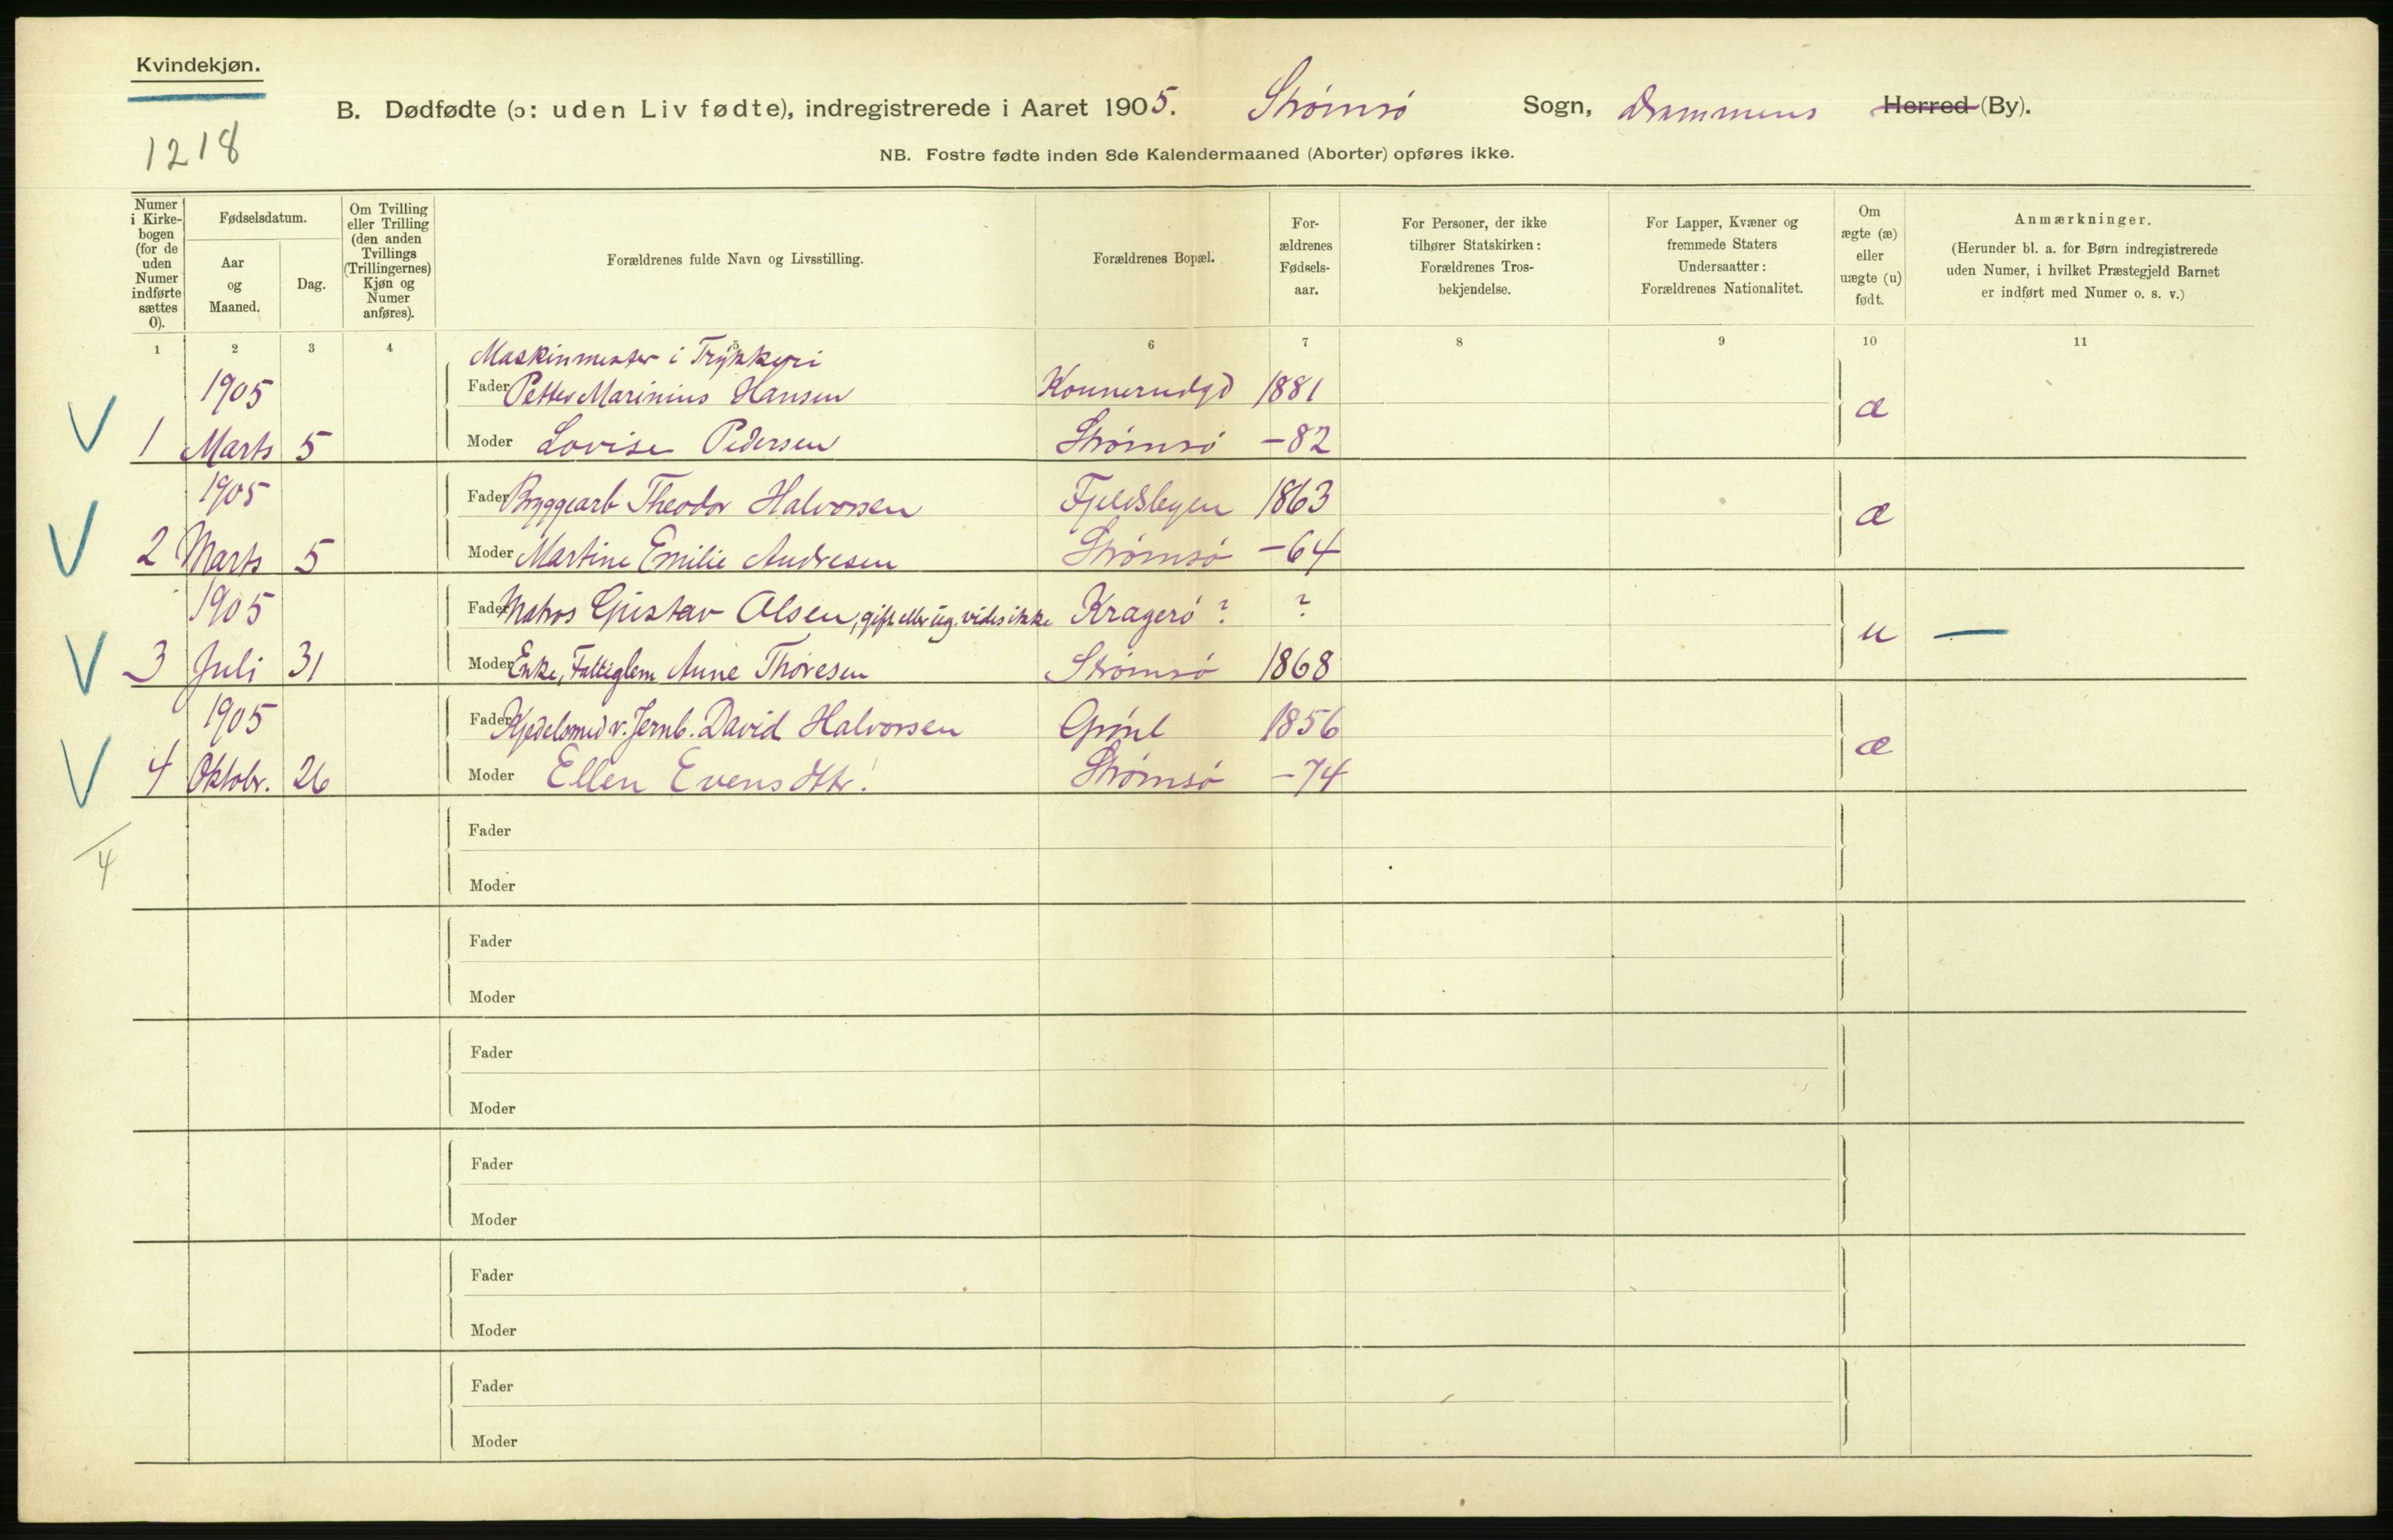 Kvindekjøn.
B. Dødfødte (ɔ: uden Liv fødte), indregistrerede i Aaret 1905. Strømsø Sogn, Drammens Herred (By).
1218
NB. Fostre fødte inden 8de Kalendermaaned (Aborter) opføres ikke.
Numer i Kirkebogen (for de uden Numer indførte sættes 0).
Fødselsdatum.
Aar og Maaned.
Dag.
Om Tvilling eller Trilling (den anden Tvillings (Trillingernes) Kjøn og Numer anføres).
Forældrenes fulde Navn og Livsstilling.
Forældrenes Bopæl.
Forældrenes Fødselsaar.
For Personer, der ikke tilhører Statskirken: Forældrenes Trosbekjendelse.
For Lapper, Kvæner og fremmede Staters Undersaatter: Forældrenes Nationalitet.
Om ægte (æ) eller uægte (u) født.
Anmærkninger.
(Herunder bl. a. for Børn indregistrerede uden Numer, i hvilket Præstegjeld Barnet er indført med Numer o. s. v.)
1 2 3 4 5 6 7 8 9 10 11
Maskinmester i Trykkeri
1905 Fader Petter Marinius Hansen Konnerudgd 1881 æ
1 Marts 5 Moder Lovise Pedersen Strømsø -82
1905 Fader Byggearb Theodor Halvorsen Fjeldsbyen 1863 æ
2 Marts 5 Moder Martine Emilie Andresen Strømsø -64
1905 Fader Matros Gustav Olsen, gift eller ug. vides ikke Kragerø ? ? u —
3 Juli 31 Moder Enke, Fattiglem Anne Thoresen Strømsø 1868
1905 Fader Kjedelsmed v. Jernb. David Halvorsen Grønl 1856 æ
4 Oktobr. 26 Moder Ellen Evensdtr. Strømsø -74
4
Fader
Moder
Fader
Moder
Fader
Moder
Fader
Moder
Fader
Moder
Fader
Moder